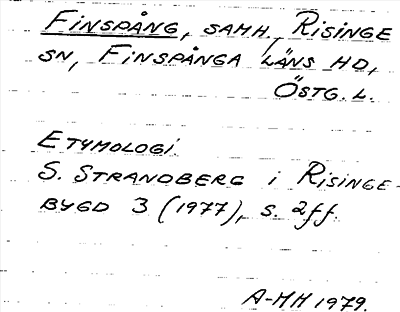 FINSPÅNG, SAMH., RISINGE
SN, FINSPÅNGA LÄNS HD,
ÖSTG. L.
ETYMOLOGI.
S. STRANDBERG i RISINGE-
BYGD 3 (1977), S. 2ff.
A-MH 1979.